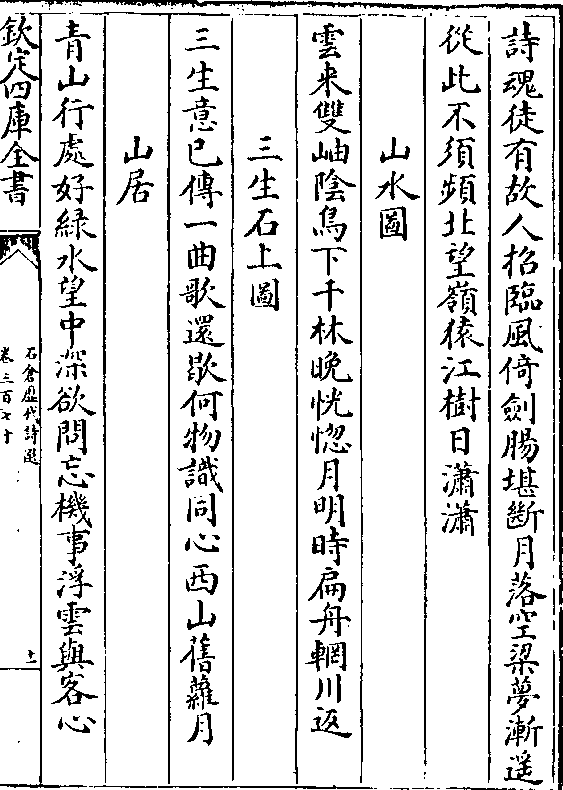 詩魂徒有故人招臨風倚劍腸堪斷月落空梁夢漸遥
從此不須頻北望嶺猿江樹日瀟瀟
山水圖
雲来雙岫陰鳥下千林晚恍惚月明時扁舟輞川返
三生石上圖
三生意已傳一曲歌還歇何物識同心西山舊蘿月
山居
青山行處好緑水望中深欲問忘機事浮雲與客心
欽定四庫全書
石倉歴代詩選
卷三百七十
十一